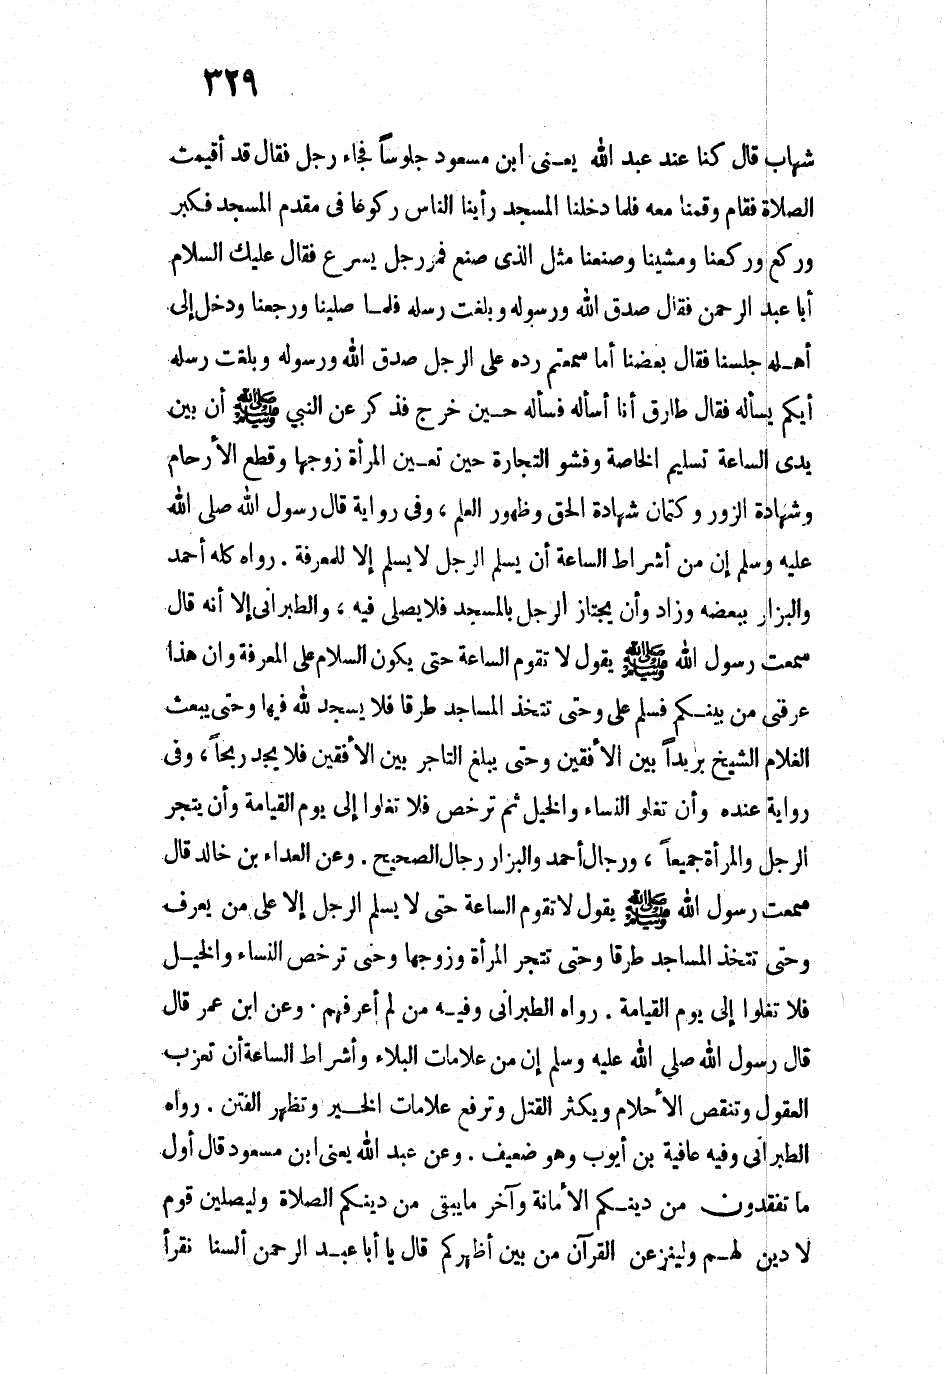 ٣٢٩
شهاب قال كنا عند عبد الله يعنى ابن مسعود جلوساً فجاء رجل فقال قد أقيمت
الصلاة فقام وقمنا معه فلما دخلنا المسجد رأينا الناس ركوعا فى مقدم المسجد فكبر
وركع وركعنا ومشينا وصنعنا مثل الذى صنع فمر رجل يسرع فقال عليك السلام
أبا عبد الرحمن فقال صدق الله ورسوله وبلغت رسله فلما صلينا ورجعنا ودخل إلى
أهله جلسنا فقال بعضنا أما سمعتم رده على الرجل صدق الله ورسوله وبلغت رسله
أيكم يسأله فقال طارق أنا أسأله فسأله حين خرج فذكر عن النبي ﷺ أن بين
يدى الساعة تسليم الخاصة وفشو التجارة حين تعين المرأة زوجها وقطع الأرحام
وشهادة الزور وكتمان شهادة الحق وظهور العلم ، وفى رواية قال رسول الله صلى الله
عليه وسلم إن من أشراط الساعة أن يسلم الرجل لا يسلم إلا للمعرفة . رواه كله أحمد
والبزار ببعضه وزاد وأن يجتاز الرجل بالمسجد فلا يصلى فيه ، والطبرانى إلا أنه قال
سمعت رسول الله ﷺ يقول لا تقوم الساعة حتى يكون السلام على المعرفة وان هذا
عرفنى من بينكم فسلم على وحتى تتخذ المساجد طرقا فلا يسجد لله فيها وحتى يبعث
الغلام الشيخ بريداً بين الأفقين وحتى يبلغ التاجر بين الأفقين فلا يجد ربحاً ، وفى
رواية عنده وأن تغلو النساء والخيل ثم ترخص فلا تغلوا إلى يوم القيامة وأن يتجر
الرجل والمرأة جميعاً ، ورجال أحمد والبزار رجال الصحيح . وعن العداء بن خالد قال
سمعت رسول الله ﷺ يقول لا تقوم الساعة حتى لا يسلم الرجل إلا على من يعرف
وحتى تتخذ المساجد طرقا وحتى تتجر المرأة وزوجها وحتى ترخص النساء والخيل
فلا تغلوا إلى يوم القيامة . رواه الطبرانى وفيه من لم أعرفهم . وعن ابن عمر قال
قال رسول الله صلي الله عليه وسلم إن من علامات البلاء وأشراط الساعة أن تعزب
العقول وتنقص الأحلام ويكثر القتل وترفع علامات الخير وتظهر الفتن . رواه
الطبرانى وفيه عافية بن أيوب وهو ضعيف . وعن عبد الله يعنى ابن مسعود قال أول
ما تفقدون من دينكم الأمانة وآخر ما يبقى من دينكم الصلاة وليصلين قوم
لا دين لهم ولينزعن القرآن من بين أظهركم قال يا أبا عبد الرحمن ألسنا نقرأ